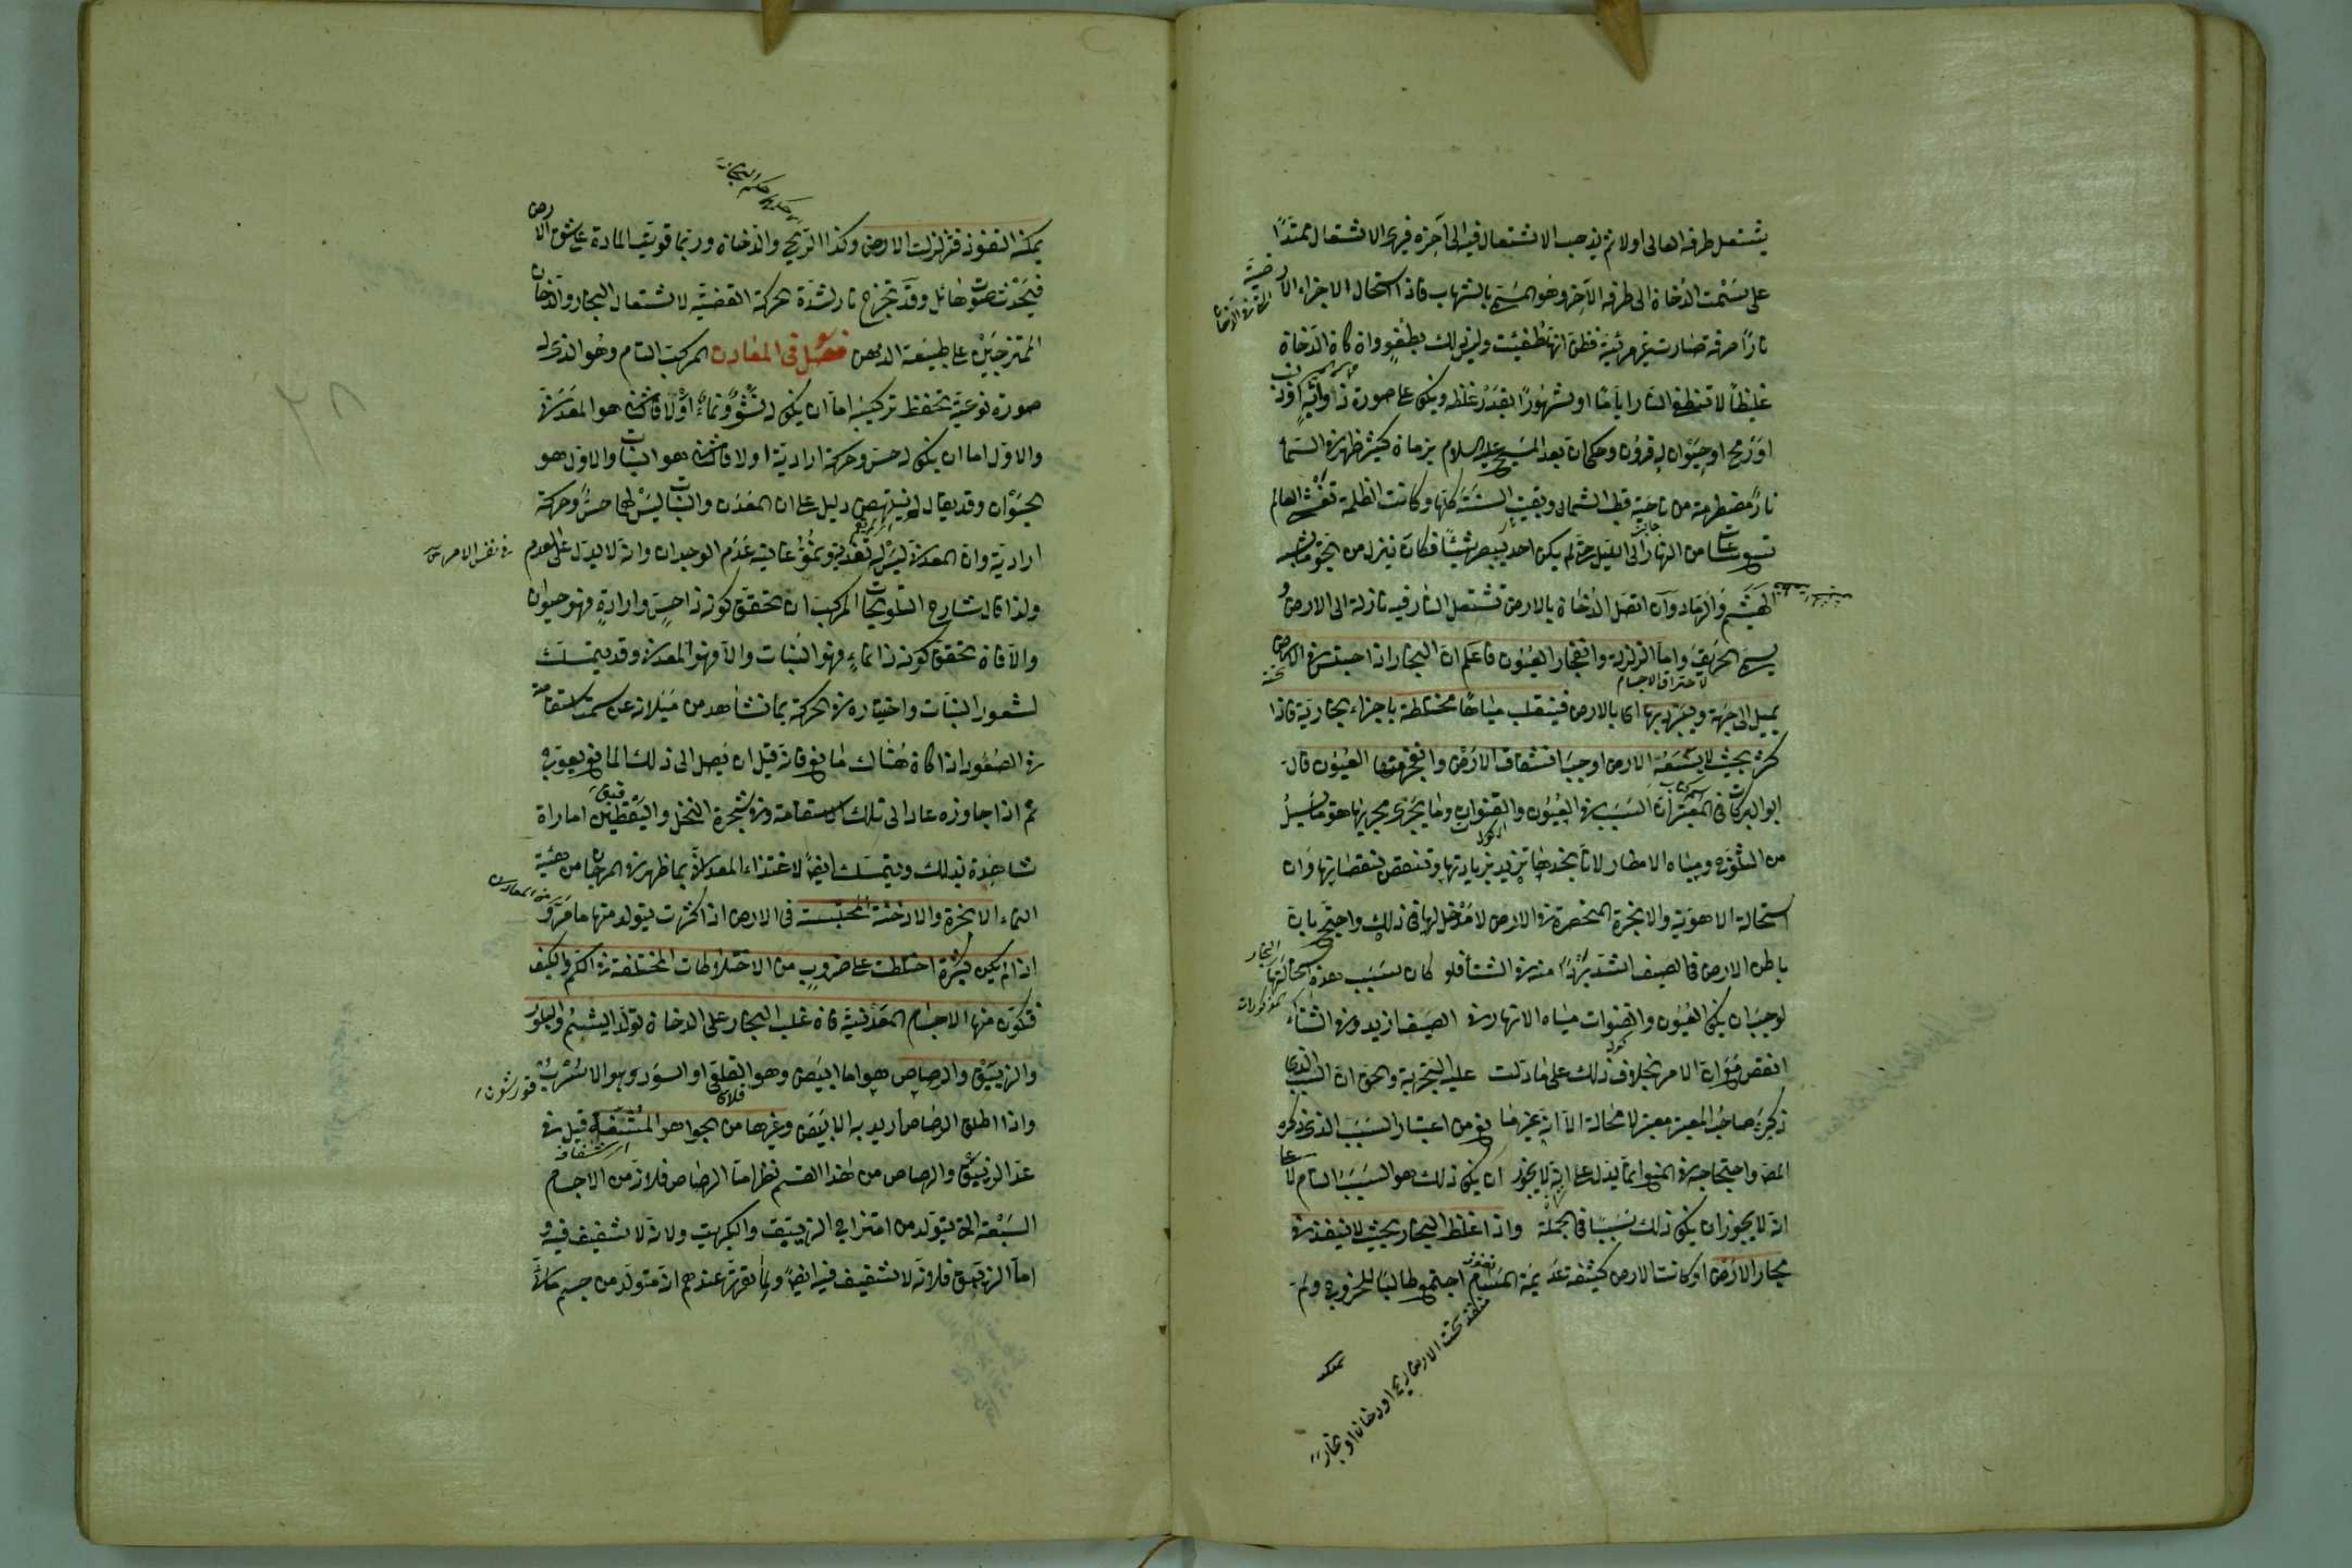 يشتعل طرفه العالي اولا ثم يذهب الاشتعال فيه الى آخره فيرى الاشتعال ممتدًا
على سمت الدخان الى طرفه الآخر وهو المسمى بالشهاب فاذا استحال الاجزاء الارضية
نارًا صرفة صارت غير مرئية فظن انها طفئت وليس ذلك بطفو وان كان الدخان
غليظًا لا تنطفئ النار ايامًا او شهورًا بقدر غلظه ويكون على صورة ذوابة او ذنب
او رمح او حيوان له قرون وحكي ان بعد المسيح عليه السلام بزمان كثير ظهر في السماء
نار مضطرمة من ناحية قطب الشمال وبقيت السنة كلها وكانت الظلمة تغشى العالم
تسع ساعات من النهار الى الليل حتى لم يكن احد يبصر شيئًا وكان ينزل من الجو ما يشبه
الهشيم والرماد وان اتصل الدخان بالارض تشتعل النار فيه نازلة الى الارض و
يسمى الحريق واما الزلزلة وانفجار العيون فاعلم ان البخار اذا احتبس في الارض
يميل الى جهة ويتبرد بها اي بالارض فينقلب مياهًا مختلطة باجزاء بخارية فاذا
كثر بحيث لا يسعه الارض اوجب انشقاق الارض وانفجر منها العيون قال
ابو البركات في المعتبر ان السبب في العيون والقنوات وما يجري مجريها هو ما يسيل
من الثلوج ومياه الامطار لانا نجدها تزيد بزيادتها وتنقص بنقصانها وان
استحالة الاهوية والابخرة المنحصرة في الارض لا مدخل لها في ذلك واحتج بان
باطن الارض في الصيف اشد بردًا منه في الشتاء فلو كان سبب هذه استحالتها
لوجب ان يكون العيون والقنوات مياه الانهار في الصيف ازيد وفي الشتاء
انقص مع ان الامر بخلاف ذلك على ما دلت عليه التجربة والحق ان السبب الذي
ذكره صاحب المعتبر معتبر لا محالة الا انه غير مانع من اعتبار السبب الذي ذكره
المص واحتجاجه في المنع انما يدل على انه لا يجوز ان يكون ذلك هو السبب التام لا على
انه لا يجوز ان يكون ذلك سببًا في الجملة واذا غلظ البخار بحيث لا ينفذ في
مجاري الارض او كانت الارض كثيفة عديمة المسام اجتمع طالبًا للخروج ولم
يمكنه
منفذ تحت الارض ريح او دخان او بخار
يمكنه النفوذ فتزلزلت الارض وكذا الريح والدخان وربما قويت المادة على شق الارض
فيحدث صوت هائل وقد تخرج نار لشدة الحركة المقتضية لاشتعال البخار والدخان
الممتزجين على طبيعة الدهن فصل في المعادن المركب التام وهو الذي له
صورة نوعية تحفظ تركيبه اما ان يكون له نشو ونماء او لا فالثاني هو المعدن
والاول اما ان يكون له حس وحركة ارادية او لا فالثاني هو النبات والاول هو
الحيوان وقد يقال لم ينتهض دليل على ان المعدن والنبات ليس لهما حس وحركة
ارادية وان المعدن ليس له تغذية ونمو غايته عدم الوجدان وانه لا يدل على العدم
في نفس الامر
ولذا قال شارح التلويحات المركب ان تحقق كونه ذا حس وارادة فهو حيوان
والا فان تحقق كونه ذا نماء فهو النبات والا فهو المعدن وقد يتمسك
لشعور النبات واختياره في الحركة بما نشاهد من ميلانه عن سمت استقامة
في الصعود اذا كان هناك مانع فانه قبل ان يصل الى ذلك المانع يعوج
ثم اذا جاوزه عاد الى تلك الاستقامة وفي شجرة النخل واليقطين امارات
شاهدة بذلك ويتمسك ايضًا لاغتذاء المعدن بما ظهر في المرجان من هيئة
النماء الابخرة والادخنة المحتبسة في الارض اذا كثرت يتولد منها ما مر و
اذا لم يكن كثيرة اختلطت على ضروب من الاختلاطات المختلفة في الكم والكيف
فتكون منها الاجسام المعدنية فان غلب البخار على الدخان تولد اليشم والبلور
والزيبق والرصاص هو اما ابيض وهو القلعي او اسود وهو الاسرب
واذا اطلق الرصاص اريد به الابيض وغيرها من الجواهر المشفة قيل في
عد الزيبق والرصاص من هذا القسم نظر اما الرصاص فلانه من الاجسام
السبعة التي يتولد من امتزاج الزيبق والكبريت ولانه لا شفيف فيه و
اما الزيبق فلانه لا شفيف فيه ايضًا ولما تقرر عندهم انه متولد من جسم